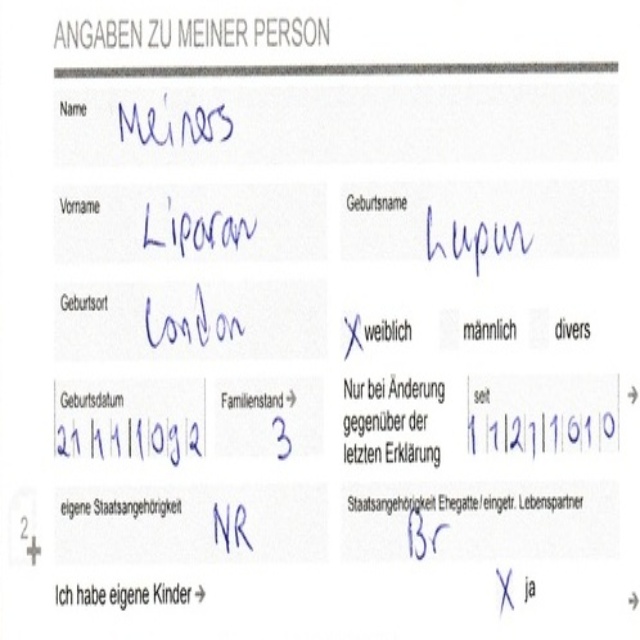 ANGABEN ZU MEINER PERSON
Name Meiners
Vorname Liparan
Geburtsname Lupun
Geburtsort London
X weiblich männlich divers
Geburtsdatum
Familienstand → 3
Nur bei Änderung
gegenüber der
letzten Erklärung
seit →
eigene Staatsangehörigkeit NR
Staatsangehörigkeit Ehegatte / eingetr. Lebenspartner Br
2
+
Ich habe eigene Kinder → X ja →